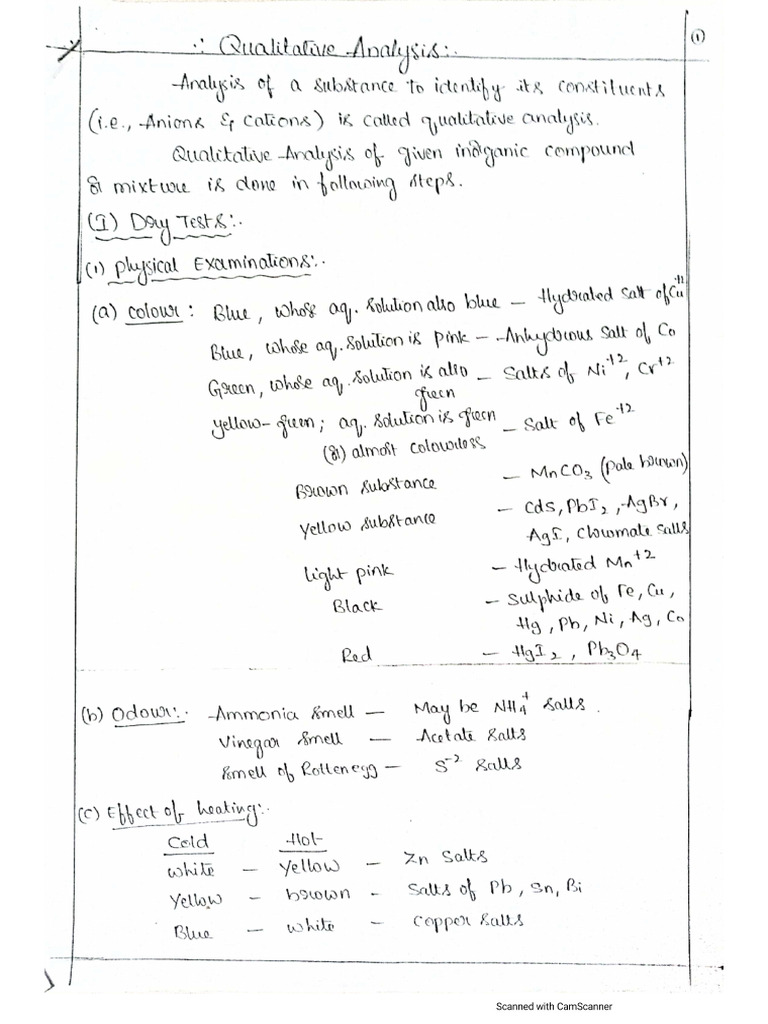 (1)
∴ Qualitative Analysis:.
Analysis of a substance to identify its constituents
(i.e., Anions & Cations) is called qualitative analysis.
Qualitative Analysis of given inorganic compound
or mixture is done in following steps.
(I) Dry Tests:.
(1) physical Examinations:.
(a) colour : Blue, whose aq. solution also blue – Hydrated salt of Cu+2
Blue, whose aq. solution is pink – Anhydrous salt of Co
Green, whose aq. solution is also green – Salts of Ni+2, Cr+2
yellow-green; aq. solution is green (or) almost colourless – Salt of Fe+2
Brown substance – MnCO3 (pale brown)
Yellow substance – Cds, PbI2, AgBr,
AgI, Chromate salts
light pink – Hydrated Mn+2
Black – Sulphide of Fe, Cu,
Hg, Pb, Ni, Ag, Co
Red – HgI2, Pb3O4
(b) Odour:. Ammonia smell – May be NH4+ salts.
Vinegar smell – Acetate salts
Smell of Rotten egg – S-2 salts
(c) Effect of heating:.
Cold Hot
white – yellow – Zn salts
yellow – brown – Salts of Pb, Sn, Bi
Blue – white – Copper salts
Scanned with CamScanner